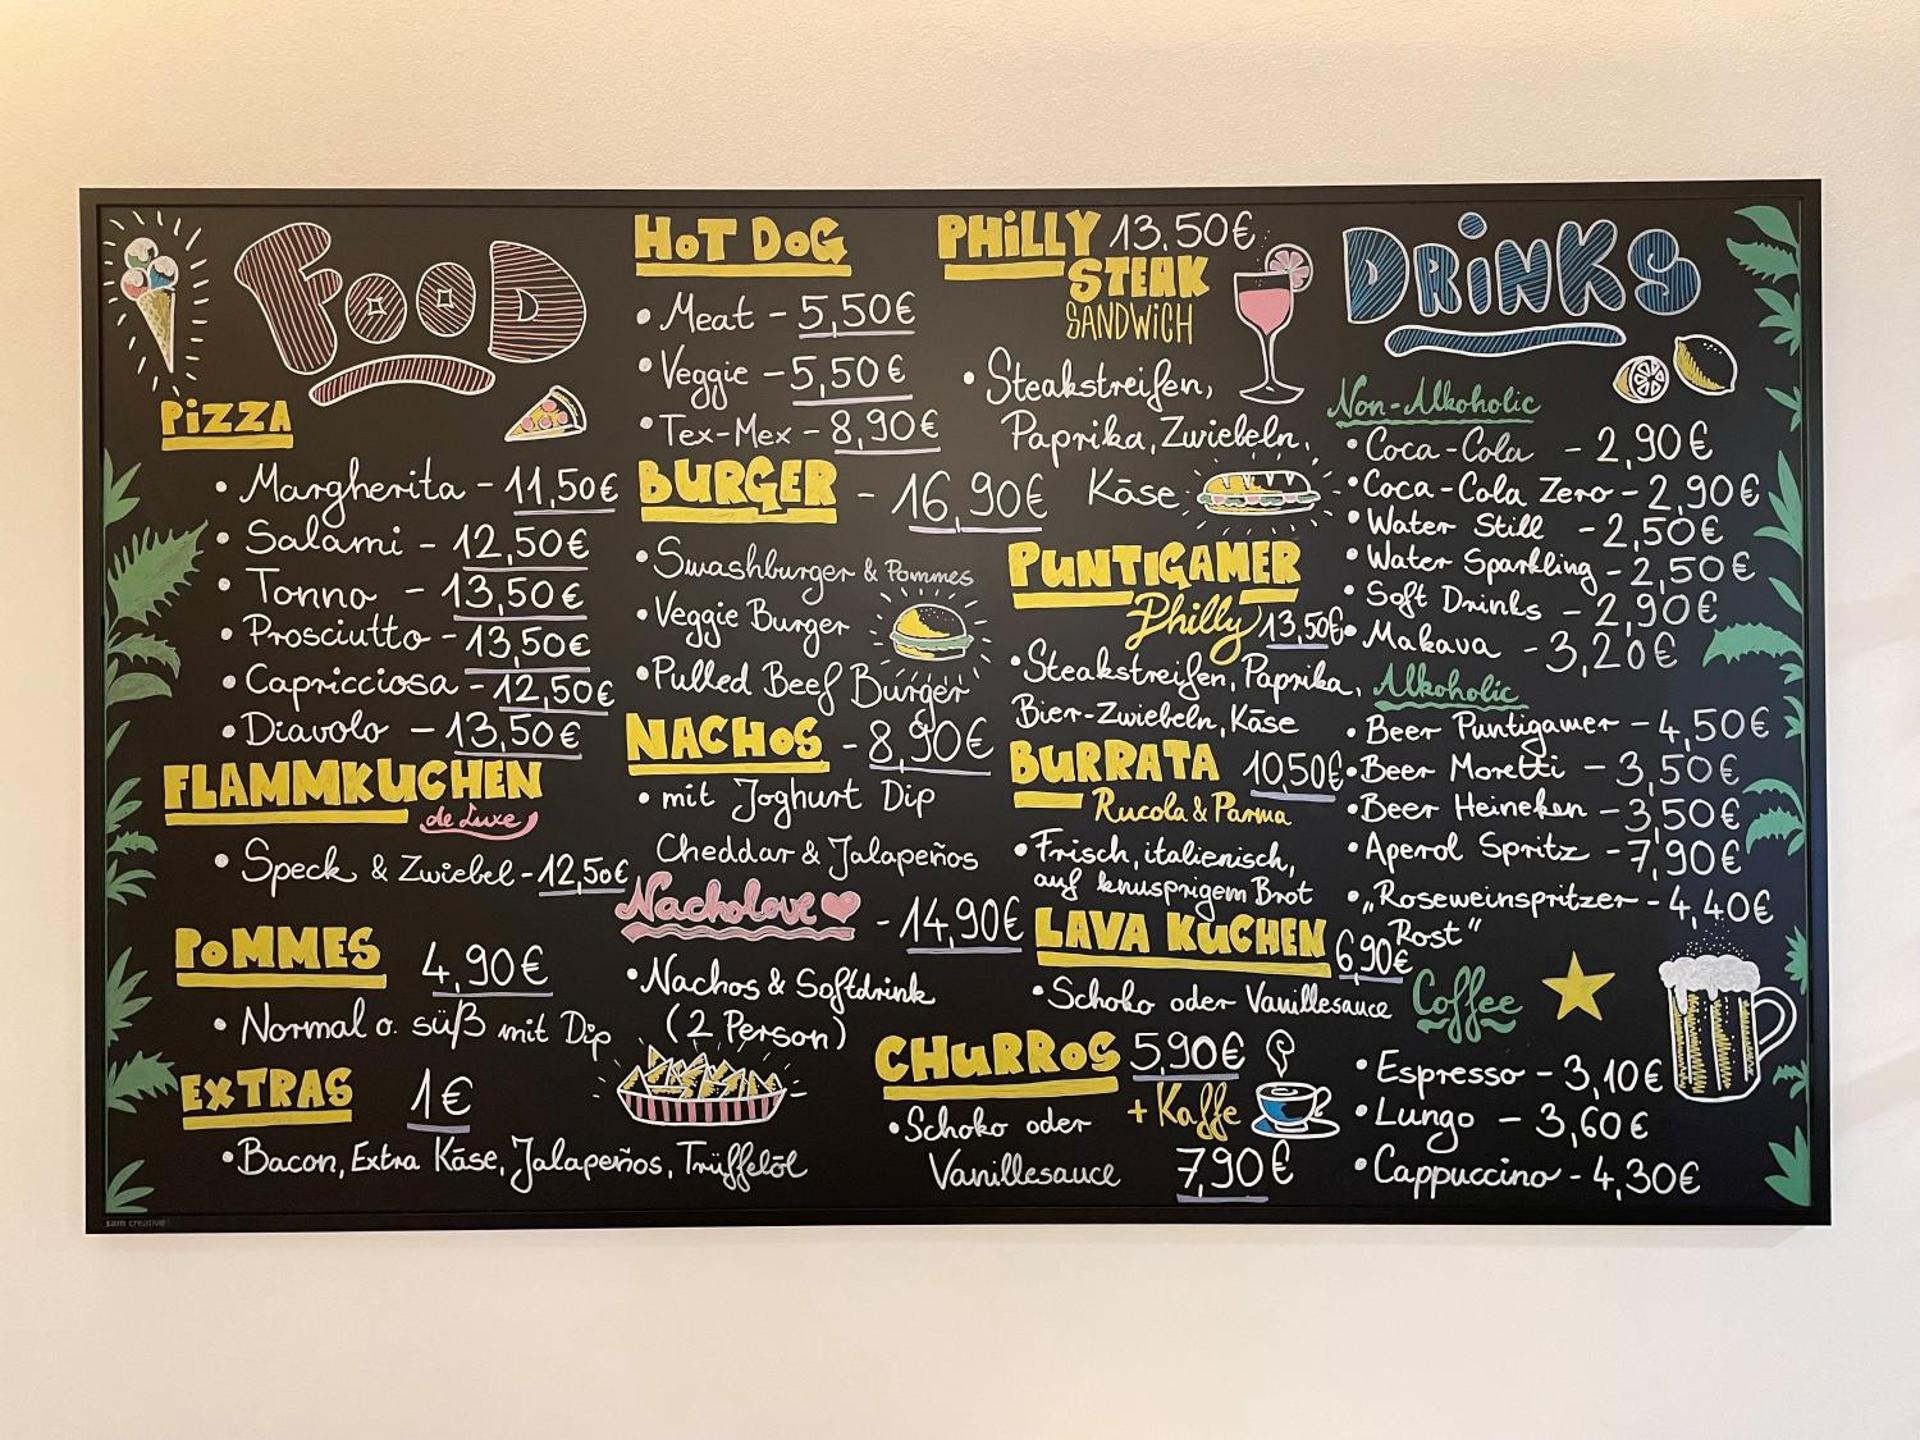 FOOD
PiZZA
• Margherita - 11,50€
• Salami - 12,50€
• Tonno - 13,50€
• Prosciutto - 13,50€
• Capricciosa - 12,50€
• Diavolo - 13,50€
FLAMMKUCHEN
de Luxe
• Speck & Zwiebel - 12,50€
POMMES 4,90€
• Normal o. süß mit Dip
EXTRAS 1€
• Bacon, Extra Käse, Jalapeños, Trüffelöl
HOT DOG
• Meat - 5,50€
• Veggie - 5,50€
• Tex-Mex - 8,90€
BURGER - 16,90€
• Smashburger & Pommes
• Veggie Burger
• Pulled Beef Burger
NACHOS - 8,90€
• mit Joghurt Dip
Cheddar & Jalapeños
Nacholove - 14,90€
• Nachos & Softdrink
(2 Person)
PHiLLY 13.50€
STEAK
SANDWiCH
• Steakstreifen,
Paprika, Zwiebeln,
Käse
PUNTIGAMER
Philly 13,50€
• Steakstreifen, Paprika,
Bier-Zwiebeln, Käse
BURRATA 10,50€
Rucola & Parma
• Frisch, italienisch,
auf knusprigem Brot
LAVA KUCHEN 6,90€
• Schoko oder Vanillesauce
CHURROS 5,90€
+ Kaffe
• Schoko oder
Vanillesauce 7,90€
DRiNKS
Non-Alkoholic
• Coca-Cola - 2,90€
• Coca-Cola Zero - 2,90€
• Water Still - 2,50€
• Water Sparkling - 2,50€
• Soft Drinks - 2,90€
• Makava - 3,20€
Alkoholic
• Beer Puntigamer - 4,50€
• Beer Moretti - 3,50€
• Beer Heineken - 3,50€
• Aperol Spritz - 7,90€
• „Roseweinspritzer - 4,40€
Rost"
Coffee
• Espresso - 3,10€
• Lungo - 3,60€
• Cappuccino - 4,30€
sam creative